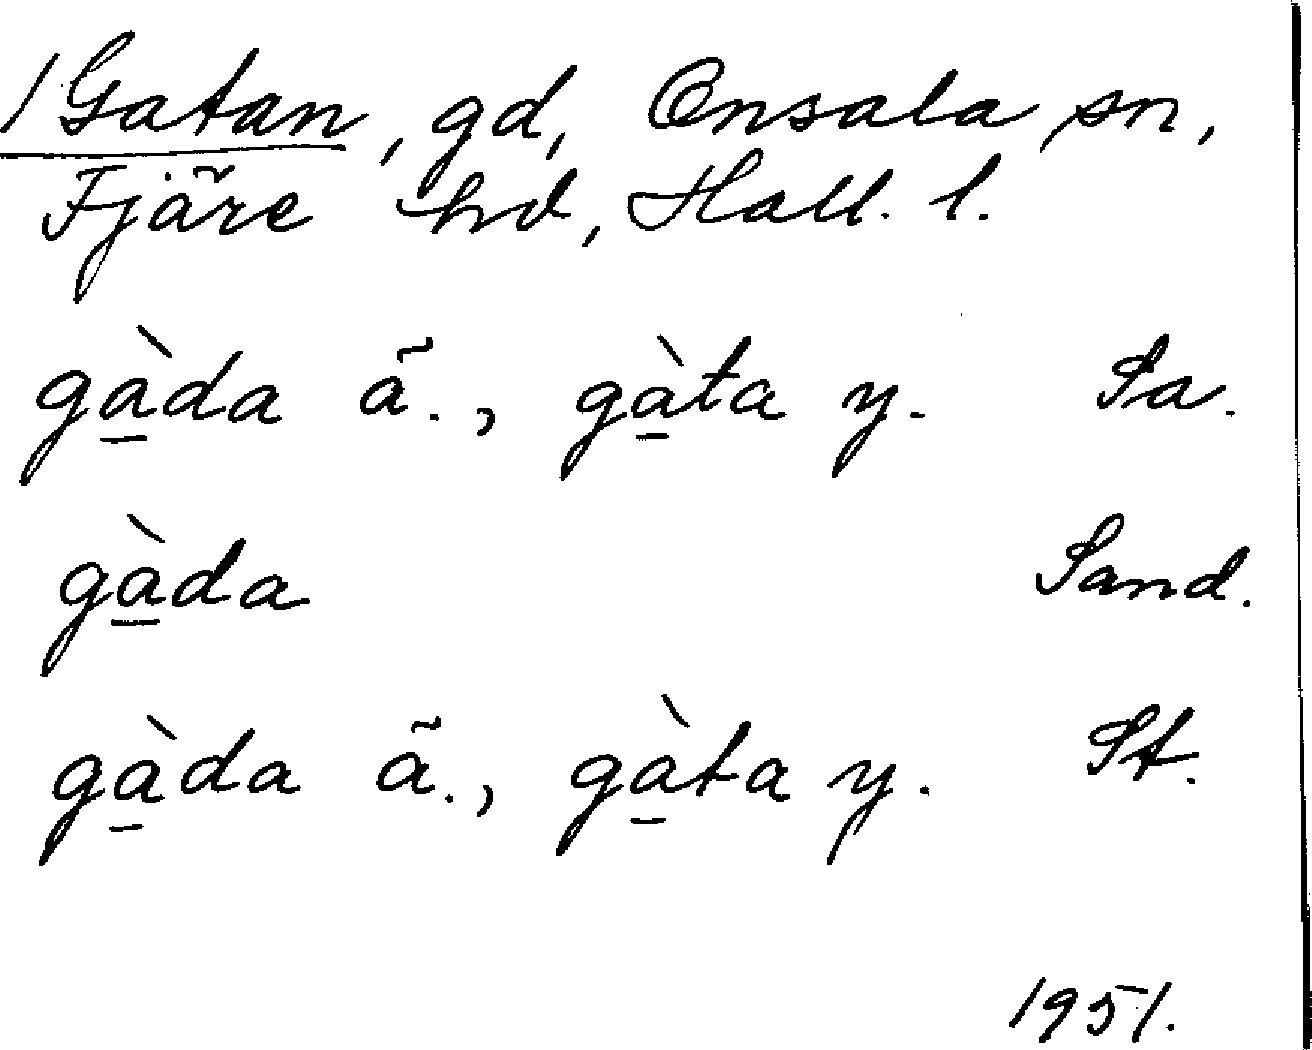 /Gatan, gd, Onsala sn,
Fjäre hd, Hall. l.
gà̱da ä., gà̱ta y. Sa.
gà̱da Sand.
gà̱da ä., gà̱ta y. St.
1951.